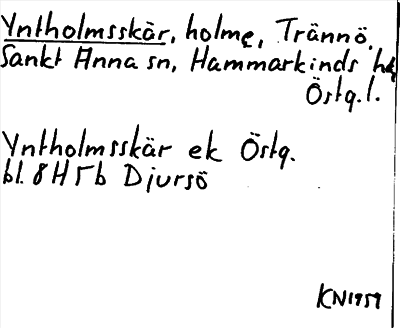 Yntholmsskär, holme, Trännö,
Sankt Anna sn, Hammarkinds hd
Östg.l.
Yntholmsskär ek Östg.
bl. 8H5b Djursö
KN1959